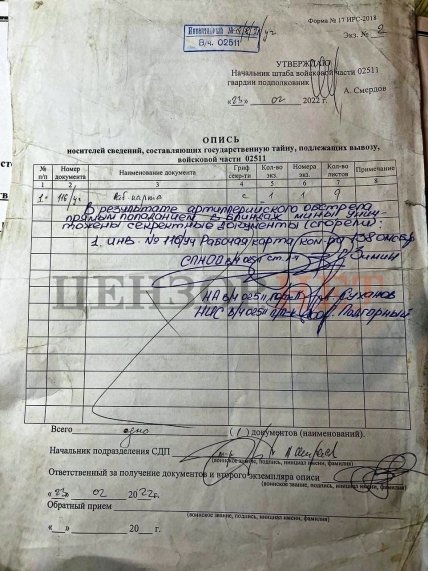 Форма № 17 ИРС-2018
Экз. № 2
В/ч. 02511
УТВЕРЖДАЮ
Начальник штаба войсковой части 02511
гвардии подполковник
А. Смердов
«03» 02 2022 г.
ОПИСЬ
носителей сведений, составляющих государственную тайну, подлежащих вывозу,
войсковой части 02511
№ п/п Номер документа Наименование документа Гриф секр-ти Кол-во экз. Номера экз. Кол-во листов Примечание
1 2 3 4 5 6 7 8
1. 116/уч Раб. карта с 1 1 9
В результате артиллерийского обстрела
прямым попаданием в блиндаж мины унич-
тожены секретные документы (сгорели):
1. инв. № 116/уч Рабочая карта ком-ра 138 омсбр
Зимин
НА в/ч 02511 Суханов
НИС в/ч 02511 Подгорный
ЦЕНЗОР.НЕТ
Всего одно (1) документов (наименований).
Начальник подразделения СДП
(воинское звание, подпись, инициал имени, фамилия)
Ответственный за получение документов и второго экземпляра описи
(воинское звание, подпись, инициал имени, фамилия)
«03» 02 2022 г.
Обратный прием
(воинское звание, подпись, инициал имени, фамилия)
«__» 20__ г.